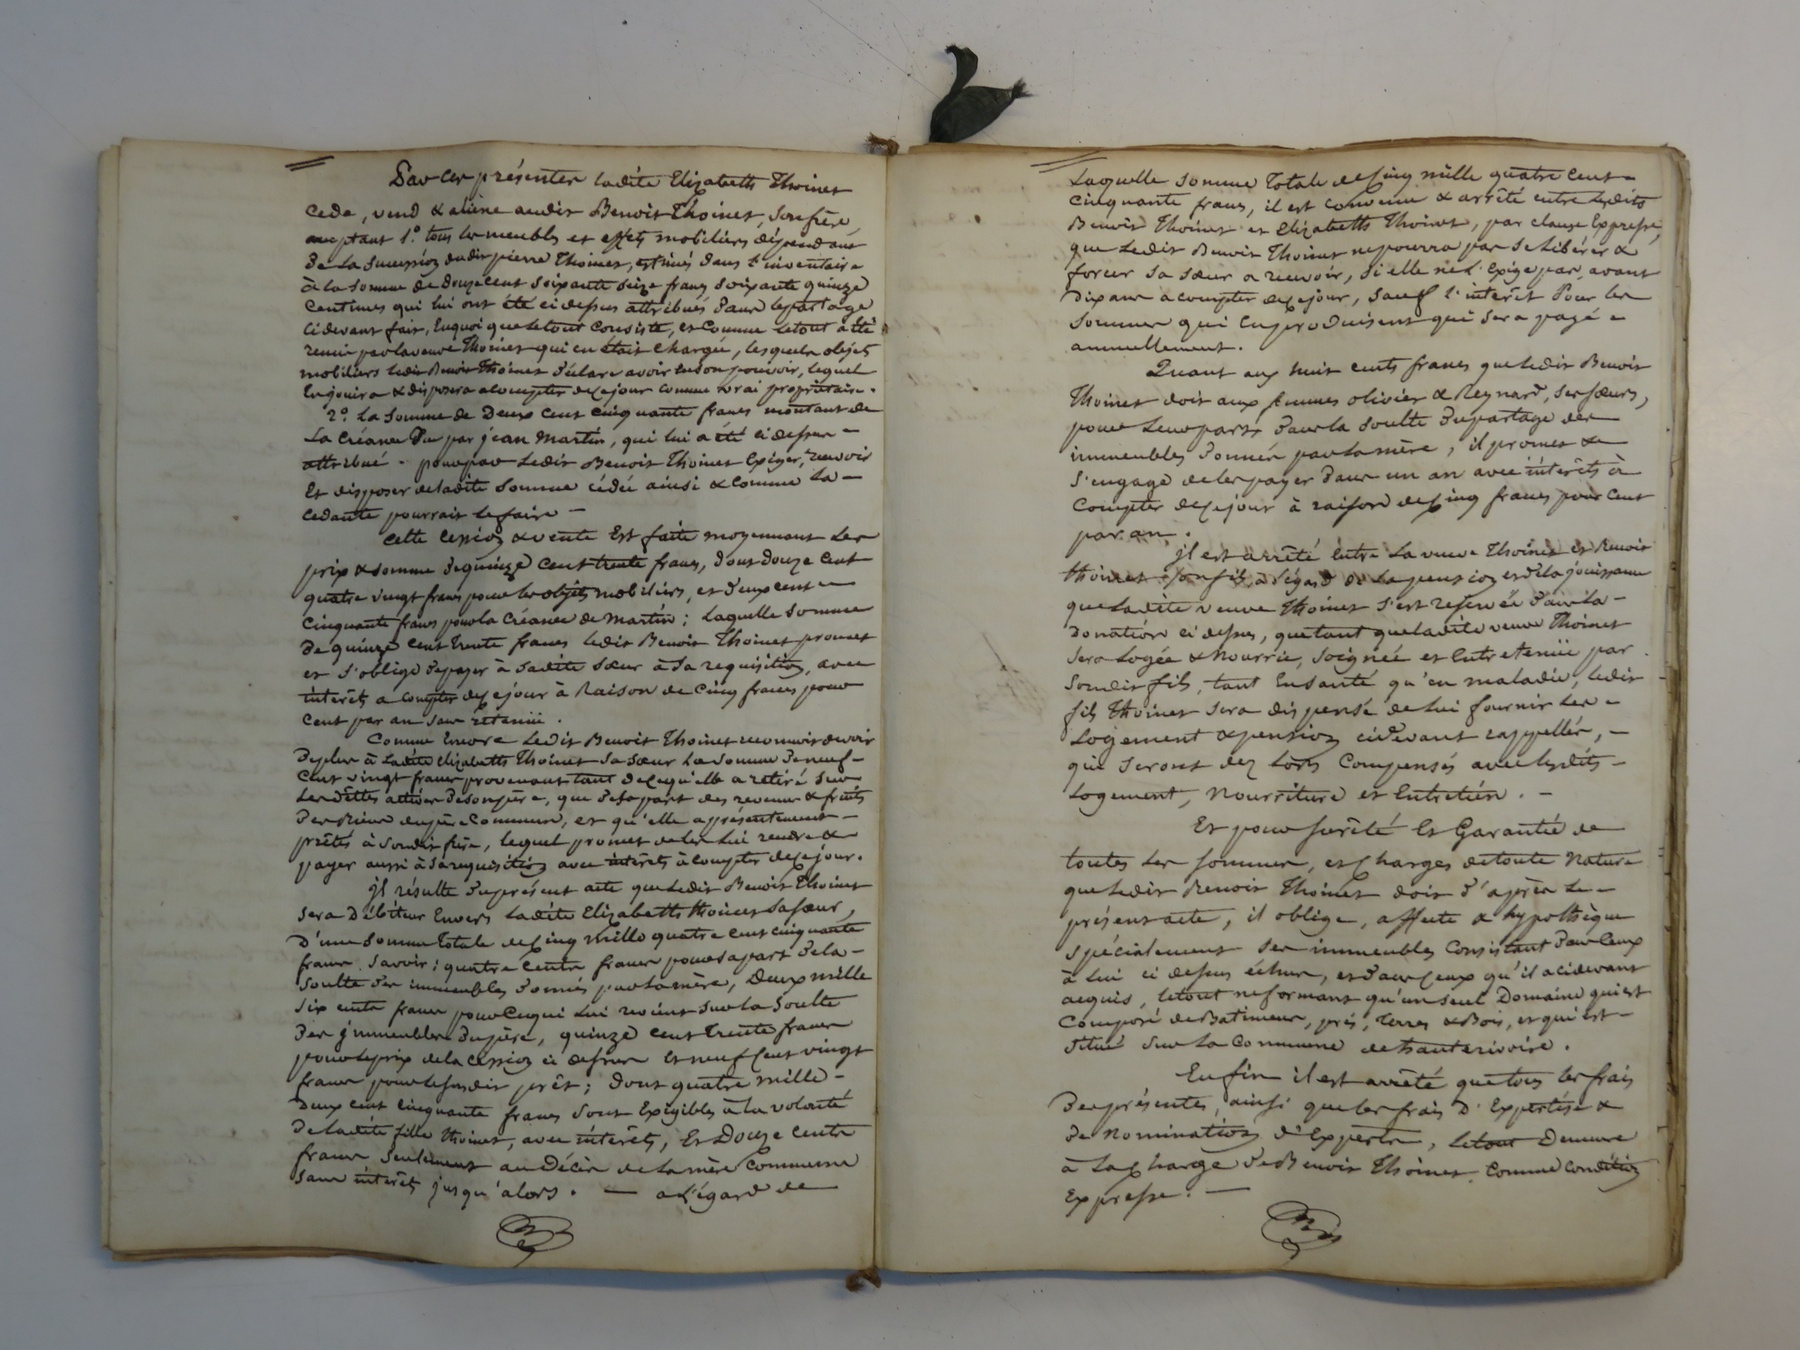 Par ces présentes ladite Elizabeth Thoinet
cede, vend & aliène audit Benoit Thoinet, son frère,
acceptant 1.° tous les meubles et effets mobiliers dépendant
de la succession dudit pierre Thoinet, estimés dans l'inventaire
à la somme de douze cent soixante seize francs soixante quinze
centimes qui lui ont été ci dessus attribués dans le partage
ci devant fait, En quoi que le tout consiste, et Comme le tout a été
remis par la veuve Thoinet qui en était chargée, lesquels objets
mobiliers ledit Benoit Thoinet déclare avoir En son pouvoir, lequel
En jouira & disposera a Compter de ce jour comme vrai propriétaire.
2.° La Somme de Deux Cent cinquante francs montant de
La Créance Due par jean Martin, qui lui a été ci dessus
attribué - pour par Ledit Benoit Thoinet Exiger, recevoir
Et disposer de ladite Somme cédée ainsi & comme la
cedante pourrait le faire -
Cette cession & vente Est faite moyennant les
prix & somme de quinze cent trente francs, dont douze cent
quatre vingt francs pour les objets mobiliers, et deux cent
cinquante francs pour la Créance de Martin ; Laquelle Somme
de quinze cent trente francs ledit Benoit Thoinet promet
et s'oblige de payer à Sadite Sœur à Sa requisition, avec
intérêts a compter de ce jour à Raison de Cinq francs pour
Cent par an sans retenue.
Comme Encore Ledit Benoit Thoinet reconnoit devoir
de plus à Ladite Elizabeth Thoinet Sa Sœur La Somme de neuf
Cent vingt francs provenant tant de ce qu'elle a retiré Sur
Les dettes actives de son père, que de sa part des revenus & fruits
des Biens du père Commun, et qu'elle a présentement
prêtés à Son dit frère, lequel promet de les lui rendre &
payer aussi à Sa requisition avec intérêts à Compter de ce jour.
Il résulte du présent acte que Ledit Benoit Thoinet
Sera Débiteur Envers Ladite Elizabeth Thoinet Sa Sœur,
D'une Somme totale de Cinq Mille quatre cent cinquante
francs. Savoir : quatre Cents francs pour sa part de la
Soulte des immeubles donnés par la mère, Deux mille
Six cents francs pour Ce qui Lui revient Sur la Soulte
des Immeubles du père, quinze Cent trente francs
pour le prix de la Cession ci dessus Et neuf Cent vingt
francs pour le susdit prêt ; dont quatre mille
deux cent cinquante francs Sont Exigibles à la volonté
de Ladite fille Thoinet, avec intérêts, Et Douze Cents
francs Seulement au Décès de la mère Commune
Sans intérêts jusqu'alors. — a l'égard de
Laquelle Somme totale de Cinq mille quatre Cent
Cinquante francs, il est convenu & arrêté entre lesdits
Benoit Thoinet et Elizabeth Thoinet, par clause Expresse,
que Ledit Benoit Thoinet ne pourra pas Se libérer &
forcer Sa Sœur a recevoir, Si elle ne l'Exige pas, avant
Dix ans a compter de ce jour, Sauf l'intérêt Pour les
Sommes qui En produisent qui Sera payé
annuellement.
Quant aux huit cents francs que Ledit Benoit
Thoinet doit aux femmes olivier & Reynard, Ses sœurs,
pour Leurs parts dans la Soulte du partage des
immeubles Donnés par la mère, il promet &
S'engage de les payer dans un an avec intérêts à
Compter de ce jour à raison de Cinq francs pour Cent
par an.
Il est arrêté Entre La veuve Thoinet et Benoit
Thoinet Son fils, à l'égard de La pension et de la jouissance
que Ladite veuve Thoinet S'est reservée dans la
Donation ci dessus, que tant que ladite veuve Thoinet
Sera Logée & Nourrie, Soignée et Entretenue par
Son dit fils, tant En Santé qu'en maladie, ledit
fils Thoinet Sera dispensé de Lui fournir Les
Logement & pension ci devant rappellés,
qui Seront dez Lors Compensés avec lesdits
Logement, Nourriture et Entretien. -
Et pour Sureté Et Garantie de
toutes Les Sommes, et Charges de toute Nature
que Ledit Benoit Thoinet doit d'après Le
présent acte, il oblige, affecte & hypothèque
Spécialement Ses immeubles Consistant Dans Ceux
à Lui ci dessus échus, et dans Ceux qu'il a ci devant
acquis, le tout ne formant qu'un Seul Domaine qui est
Composé de Batimens, prés, terres & Bois, et qui est
Situé Sur La Commune de hauterivoire.
En fin il est arrêté que tous les frais
des présentes, ainsi que les frais D'Expertise &
de Nomination d'Experts, le tout Demeure
à La Charge de Benoit Thoinet Comme Condition
Expresse. —